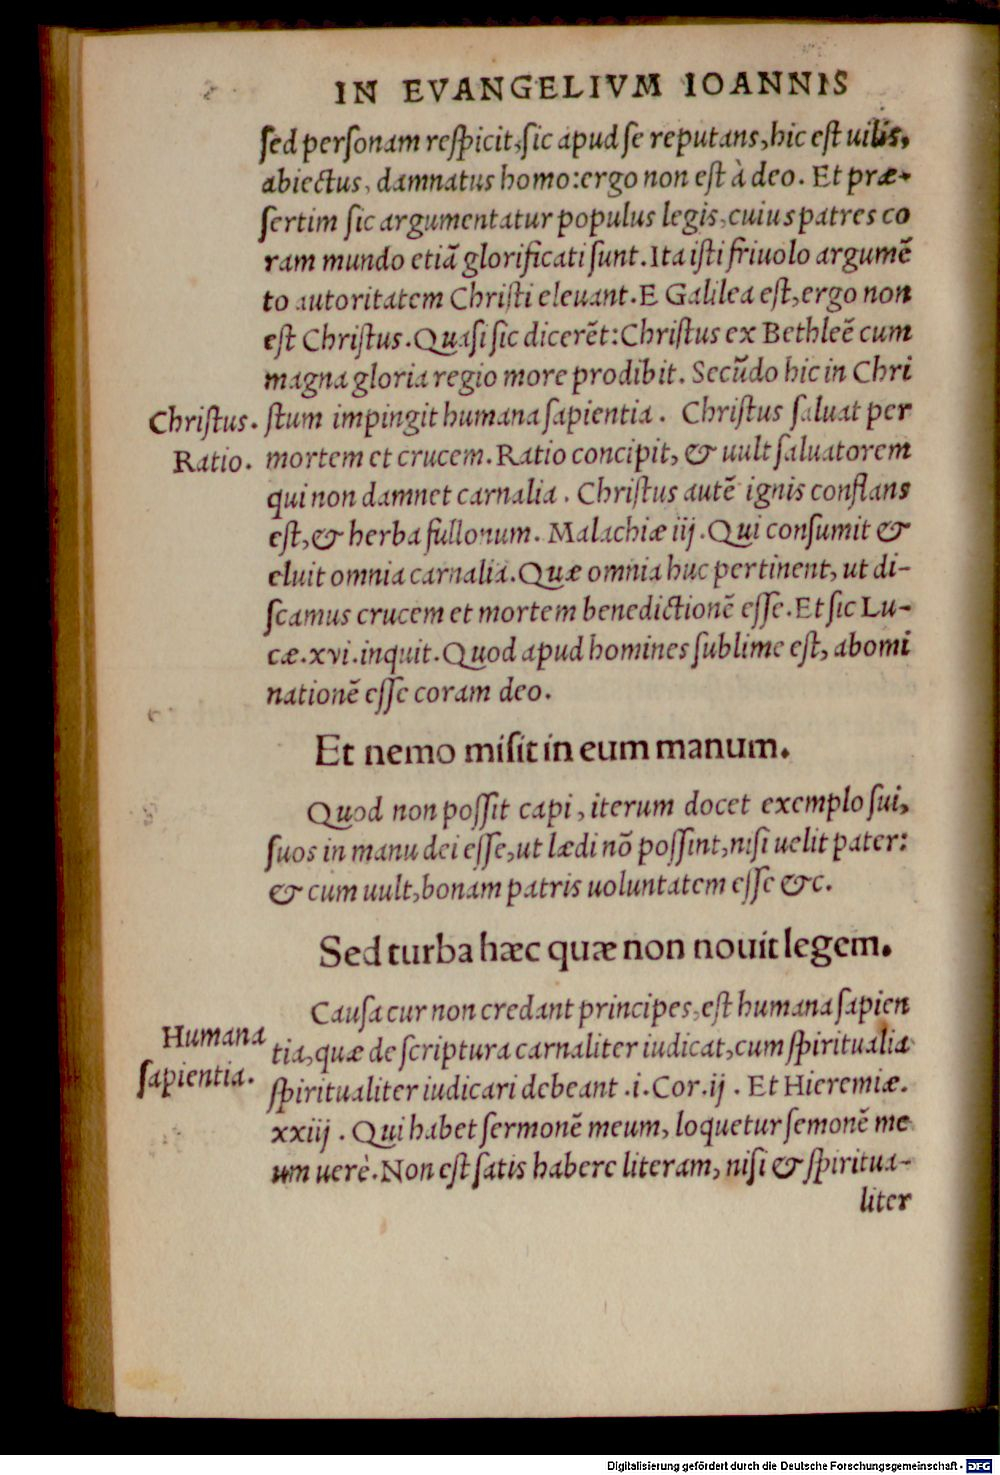 IN EVANGELIVM IOANNIS
sed personam respicit, sic apud se reputans, hic est uilis,
abiectus, damnatus homo: ergo non est à deo. Et præ-
sertim sic argumentatur populus legis, cuius patres co
ram mundo etiã glorificati sunt. Ita isti friuolo argumẽ
to autoritatem Christi eleuant. E Galilea est, ergo non
est Christus. Quasi sic dicerẽt: Christus ex Bethleẽ cum
magna gloria regio more prodibit. Secũdo hic in Chri
Christus. stum impingit humana sapientia. Christus saluat per
Ratio. mortem et crucem. Ratio concipit, & uult saluatorem
qui non damnet carnalia. Christus autẽ ignis conflans
est, & herba fullonum. Malachiæ iij. Qui consumit &
eluit omnia carnalia. Quæ omnia huc pertinent, ut di-
scamus crucem et mortem benedictionẽ esse. Et sic Lu-
cæ. xvi. inquit. Quod apud homines sublime est, abomi
nationẽ esse coram deo.
Et nemo misit in eum manum.
Quod non possit capi, iterum docet exemplo sui,
suos in manu dei esse, ut lædi nõ possint, nisi uelit pater:
& cum uult, bonam patris uoluntatem esse &c.
Sed turba hæc quæ non nouit legem.
Causa cur non credant principes, est humana sapien
Humana tia, quæ de scriptura carnaliter iudicat, cum spiritualia
sapientia. spiritualiter iudicari debeant .i. Cor. ij. Et Hieremiæ.
xxiij. Qui habet sermonẽ meum, loquetur semonẽ me
um uerè. Non est satis habere literam, nisi & spiritua-
liter
Digitalisierung gefördert durch die Deutsche Forschungsgemeinschaft - DFG